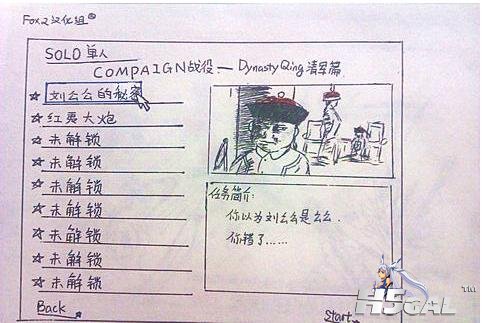 Fox2汉化组®
SOLO 单人
COMPAIGN战役 — Dynasty Qing 清军篇
刘么么的秘密
红夷大炮
未解锁
未解锁
未解锁
未解锁
未解锁
未解锁
任务简介:
你以为刘么么是么么.
你错了……
Back
Start
H5GAL TM